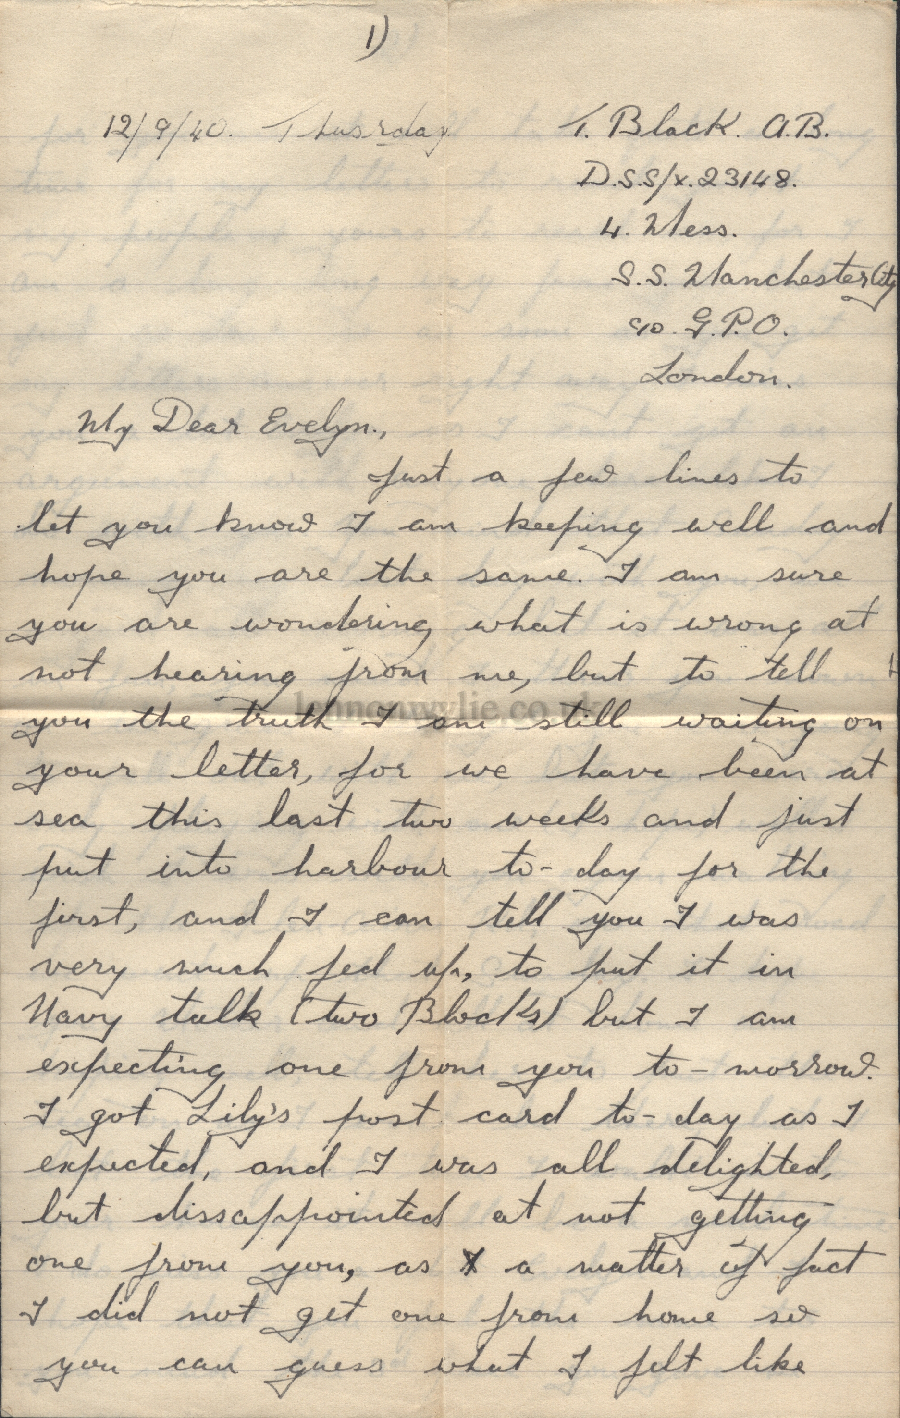 1)
12/9/40. Thusrday
T. Black. A.B.
D.S.S/x.23148.
4. Mess.
S.S. Manchester City
c/o. G.P.O.
London.
My Dear Evelyn.,
Just a few lines to
let you know I am keeping well and
hope you are the same. I am sure
you are wondering what is wrong at
not hearing from me, but to tell
lennonwylie.co.uk
you the truth I am still waiting on
your letter, for we have been at
sea this last two weeks and just
put into harbour to-day for the
first, and I can tell you I was
very much fed up, to put it in
Navy talk (two Blocks) but I am
expecting one from you to-morrow.
I got Lily's post card to-day as I
expected, and I was all delighted,
but dissappointed at not getting
one from you, as a matter of fact
I did not get one from home so
you can guess what I felt like